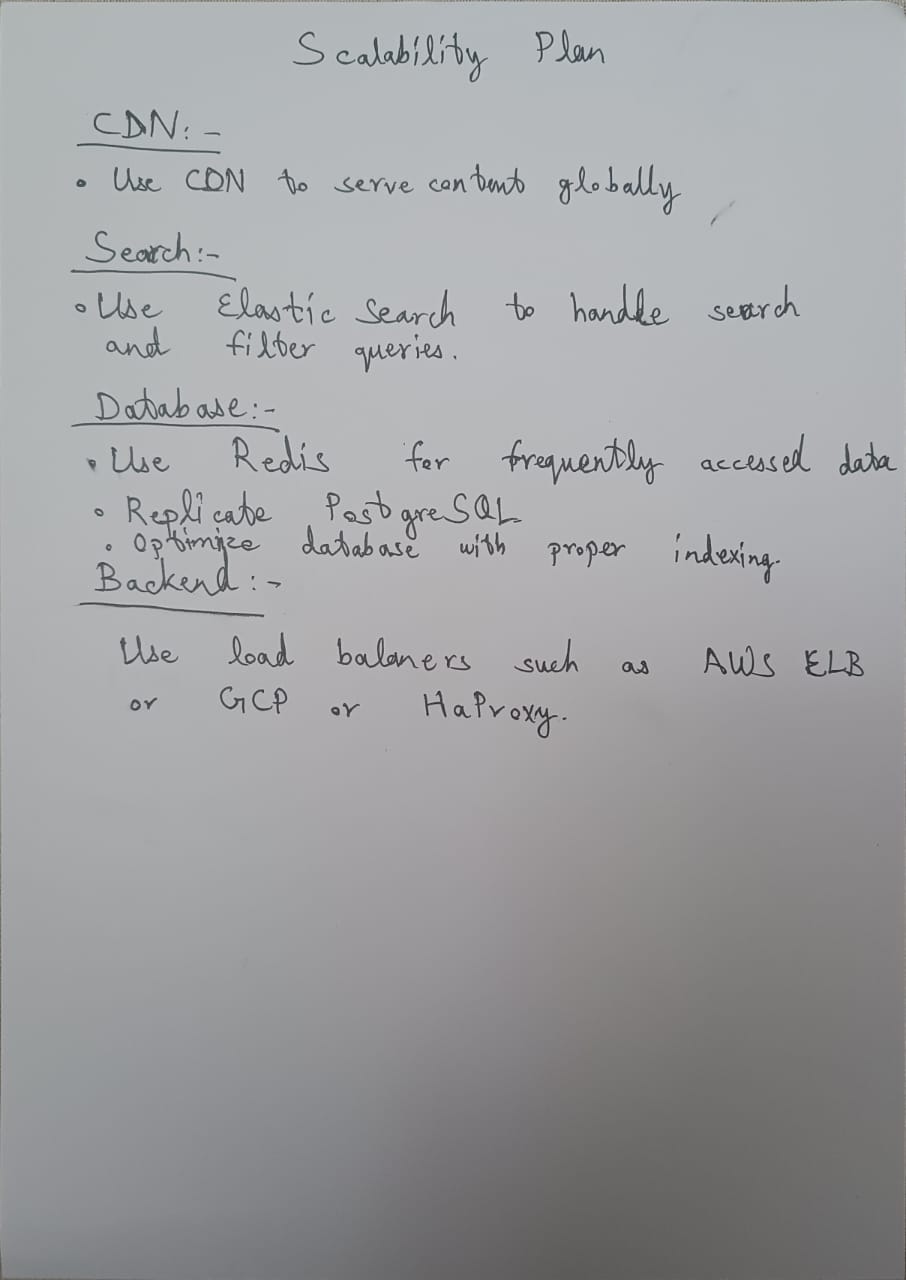 Scalability Plan
CDN:-
• Use CDN to serve content globally
Search:-
• Use Elastic Search to handle search
and filter queries.
Database:-
• Use Redis for frequently accessed data
• Replicate PostgreSQL
• Optimize database with proper indexing.
Backend:-
Use load balaners such as AWS ELB
or GCP or HaProxy.